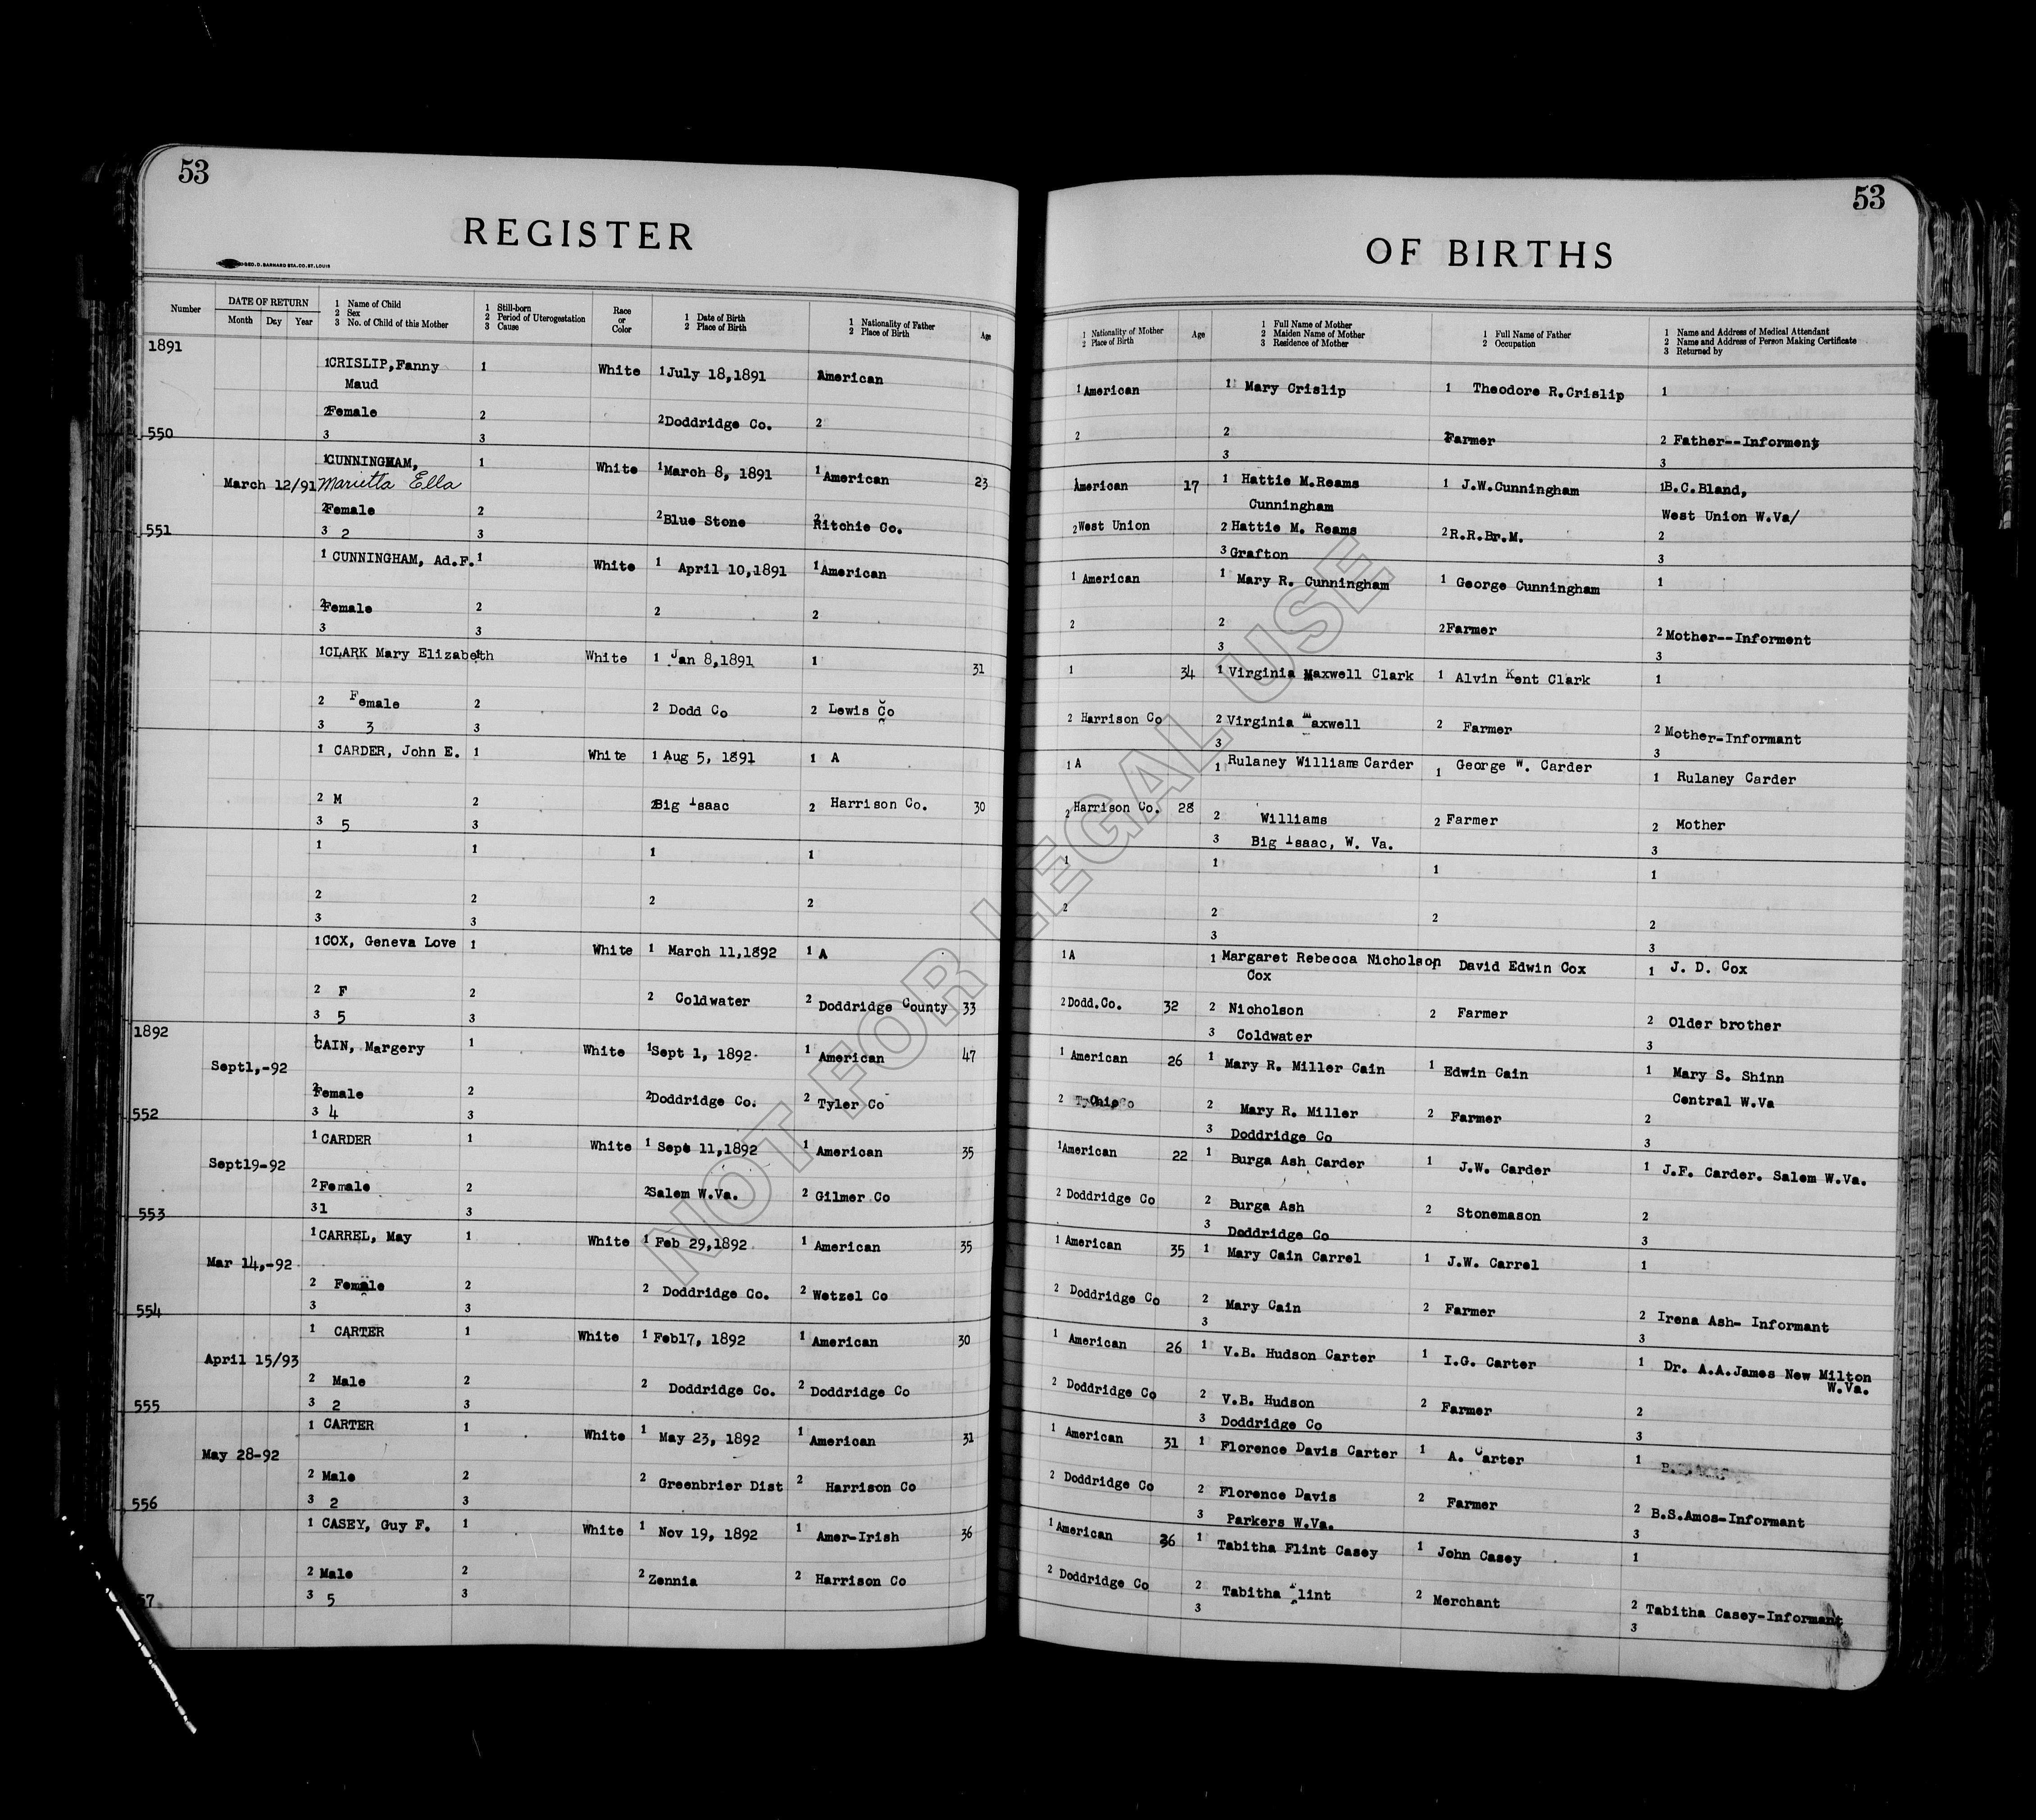 53
53
REGISTER
OF BIRTHS
GEO. D. BARNARD STA. CO. ST. LOUIS
Number
DATE OF RETURN
Month Day Year
1 Name of Child
2 Sex
3 No. of Child of this Mother
1 Still-born
2 Period of Uterogestation
3 Cause
Race
or
Color
1 Date of Birth
2 Place of Birth
1 Nationality of Father
2 Place of Birth
Age
1 Nationality of Mother
2 Place of Birth
Age
1 Full Name of Mother
2 Maiden Name of Mother
3 Residence of Mother
1 Full Name of Father
2 Occupation
1 Name and Address of Medical Attendant
2 Name and Address of Person Making Certificate
3 Returned by
1891
1 CRISLIP, Fanny 1 White 1 July 18,1891 American 1 American 1 Mary Crislip 1 Theodore R.Crislip 1
Maud
2 Female 2 2 Doddridge Co. 2 2 2 2 Farmer 2 Father--Informent
550 3 3 3 3
1 CUNNINGHAM, 1 White 1 March 8, 1891 1 American 23 American 17 1 Hattie M.Reams 1 J.W.Cunningham 1 B.C.Bland,
March 12/91 Marietta Ella Cunningham West Union W.Va/
2 Female 2 2 Blue Stone 2 Ritchie Co. 2 West Union 2 Hattie M. Reams 2 R.R.Br.M. 2
551 3 2 3 3 Grafton 3
1 CUNNINGHAM, Ad.F. 1 White 1 April 10,1891 1 American 1 American 1 Mary R. Cunningham 1 George Cunningham 1
2 Female 2 2 2 2 2 2 Farmer 2 Mother--Informent
3 3 3 3
1 CLARK Mary Elizabeth White 1 Jan 8,1891 1 31 1 34 1 Virginia Maxwell Clark 1 Alvin Kent Clark 1
2 Female 2 2 Dodd Co 2 Lewis Co 2 Harrison Co 2 Virginia Maxwell 2 Farmer 2 Mother-Informant
3 3 3 3 3
1 CARDER, John E. 1 White 1 Aug 5, 1891 1 A 1 A 1 Rulaney Williams Carder 1 George W. Carder 1 Rulaney Carder
2 M 2 2 Big Isaac 2 Harrison Co. 30 2 Harrison Co. 28 2 Williams 2 Farmer 2 Mother
3 5 3 3 Big Isaac, W. Va. 3
1 1 1 1 1 1 1 1
2 2 2 2 2 2 2 2
3 3 3 3
1 COX, Geneva Love 1 White 1 March 11,1892 1 A 1 A 1 Margaret Rebecca Nicholson 1 David Edwin Cox 1 J. D. Cox
Cox
2 F 2 2 Coldwater 2 Doddridge County 33 2 Dodd.Co. 32 2 Nicholson 2 Farmer 2 Older brother
3 5 3 3 Coldwater 3
1892
1 CAIN, Margery 1 White 1 Sept 1, 1892 1 American 47 1 American 26 1 Mary R. Miller Cain 1 Edwin Cain 1 Mary S. Shinn
Sept1,-92 Central W.Va
2 Female 2 2 Doddridge Co. 2 Tyler Co 2 2 Mary R. Miller 2 Farmer 2
552 3 4 3 3 Doddridge Co 3
1 CARDER 1 White 1 Sept 11,1892 1 American 35 1 American 22 1 Burga Ash Carder 1 J.W. Carder 1 J.F. Carder. Salem W.Va.
Sept19-92
2 Female 2 2 Salem W.Va. 2 Gilmer Co 2 Doddridge Co 2 Burga Ash 2 Stonemason 2
553 3 1 3 3 Doddridge Co 3
1 CARREL, May 1 White 1 Feb 29,1892 1 American 35 1 American 35 1 Mary Cain Carrel 1 J.W. Carrel 1
Mar 14,-92
2 Female 2 2 Doddridge Co. 2 Wetzel Co 2 Doddridge Co 2 Mary Cain 2 Farmer 2 Irena Ash- Informant
554 3 3 3 3
1 CARTER 1 White 1 Feb17, 1892 1 American 30 1 American 26 1 V.B. Hudson Carter 1 I.G. Carter 1 Dr. A.A.James New Milton
April 15/93 W.Va.
2 Male 2 2 Doddridge Co. 2 Doddridge Co 2 Doddridge Co 2 V.B. Hudson 2 Farmer 2
555 3 2 3 3 Doddridge Co 3
1 CARTER 1 White 1 May 23, 1892 1 American 31 1 American 31 1 Florence Davis Carter 1 A. Carter 1
May 28-92
2 Male 2 2 Greenbrier Dist 2 Harrison Co 2 Doddridge Co 2 Florence Davis 2 Farmer 2 B.S.Amos-Informant
556 3 2 3 3 Parkers W.Va. 3
1 CASEY, Guy F. 1 White 1 Nov 19, 1892 1 Amer-Irish 36 1 American 36 1 Tabitha Flint Casey 1 John Casey 1
2 Male 2 2 Zennia 2 Harrison Co 2 Doddridge Co 2 Tabitha Flint 2 Merchant 2 Tabitha Casey-Informant
57 3 5 3 3 3
NOT FOR LEGAL USE